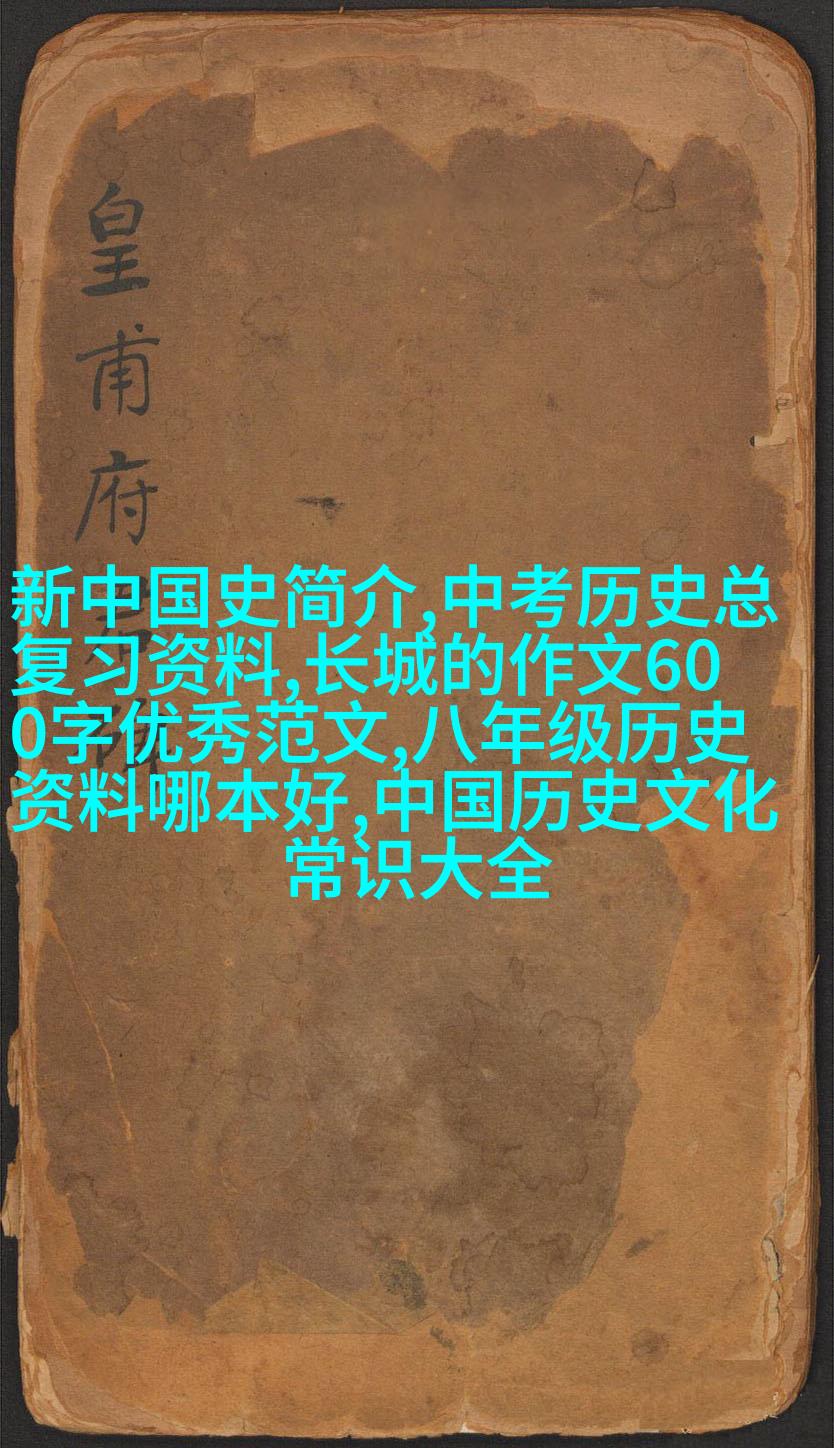 皇甫府君碑
新中国史简介,中考历史总
复习资料,长城的作文60
0字优秀范文,八年级历史
资料哪本好,中国历史文化
常识大全